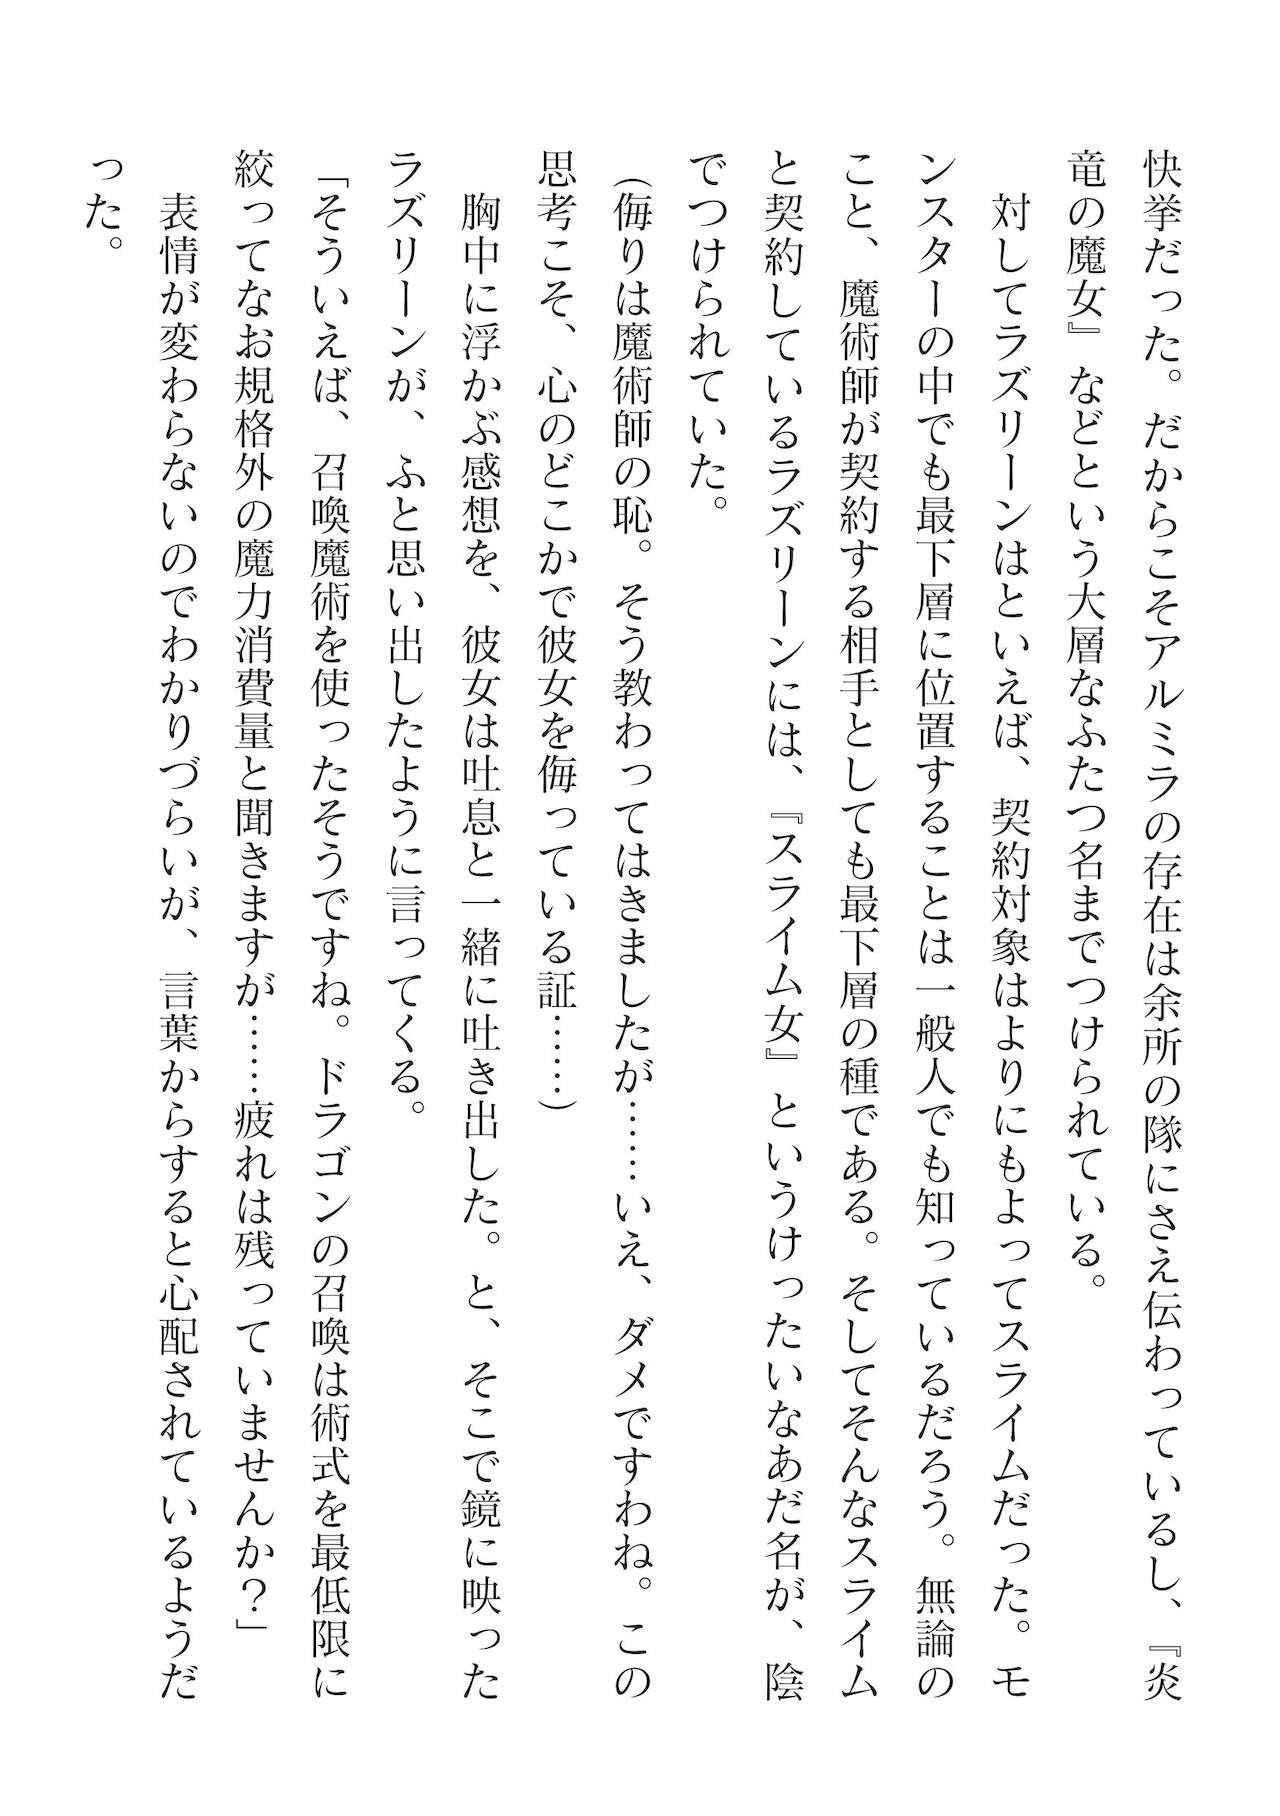 快挙だった。だからこそアルミラの存在は余所の隊にさえ伝わっているし、『炎
竜の魔女』などという大層なふたつ名までつけられている。
　対してラズリーンはといえば、契約対象はよりにもよってスライムだった。モ
ンスターの中でも最下層に位置することは一般人でも知っているだろう。無論の
こと、魔術師が契約する相手としても最下層の種である。そしてそんなスライム
と契約しているラズリーンには、『スライム女』というけったいなあだ名が、陰
でつけられていた。
（侮りは魔術師の恥。そう教わってはきましたが……いえ、ダメですわね。この
思考こそ、心のどこかで彼女を侮っている証……）
　胸中に浮かぶ感想を、彼女は吐息と一緒に吐き出した。と、そこで鏡に映った
ラズリーンが、ふと思い出したように言ってくる。
「そういえば、召喚魔術を使ったそうですね。ドラゴンの召喚は術式を最低限に
絞ってなお規格外の魔力消費量と聞きますが……疲れは残っていませんか？」
　表情が変わらないのでわかりづらいが、言葉からすると心配されているようだ
った。